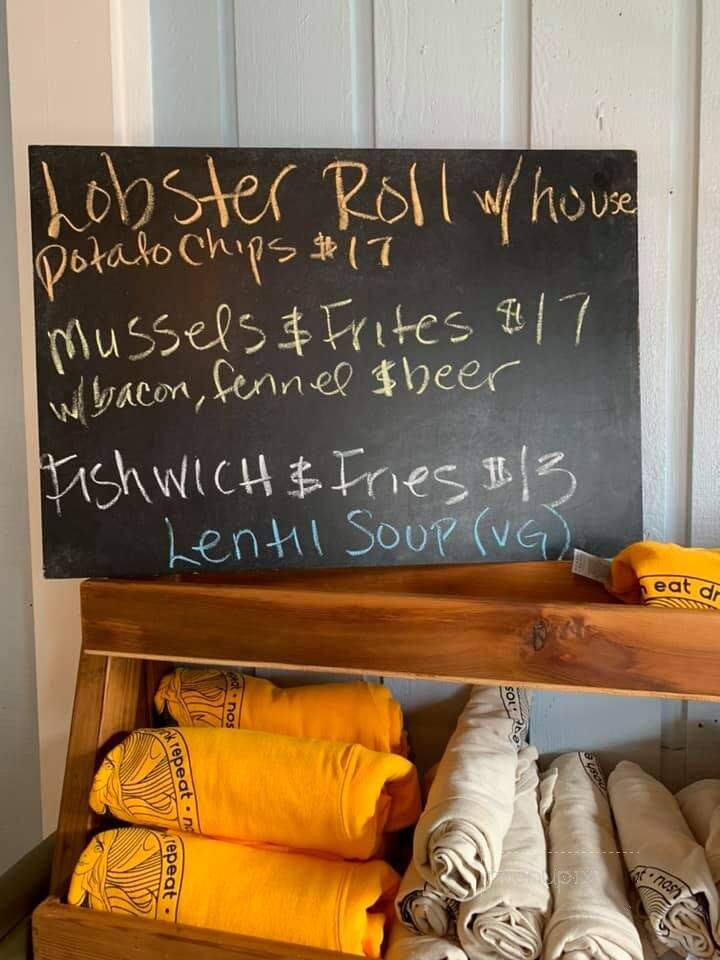 Lobster Roll w/ house
potato chips $17
Mussels & Frites $17
w/bacon, fennel & beer
Fishwich & Fries $13
Lentil Soup (VG)
eat dr
nk repeat • no
repeat •
nos
sol •
nosh
ot • nosh
menupix